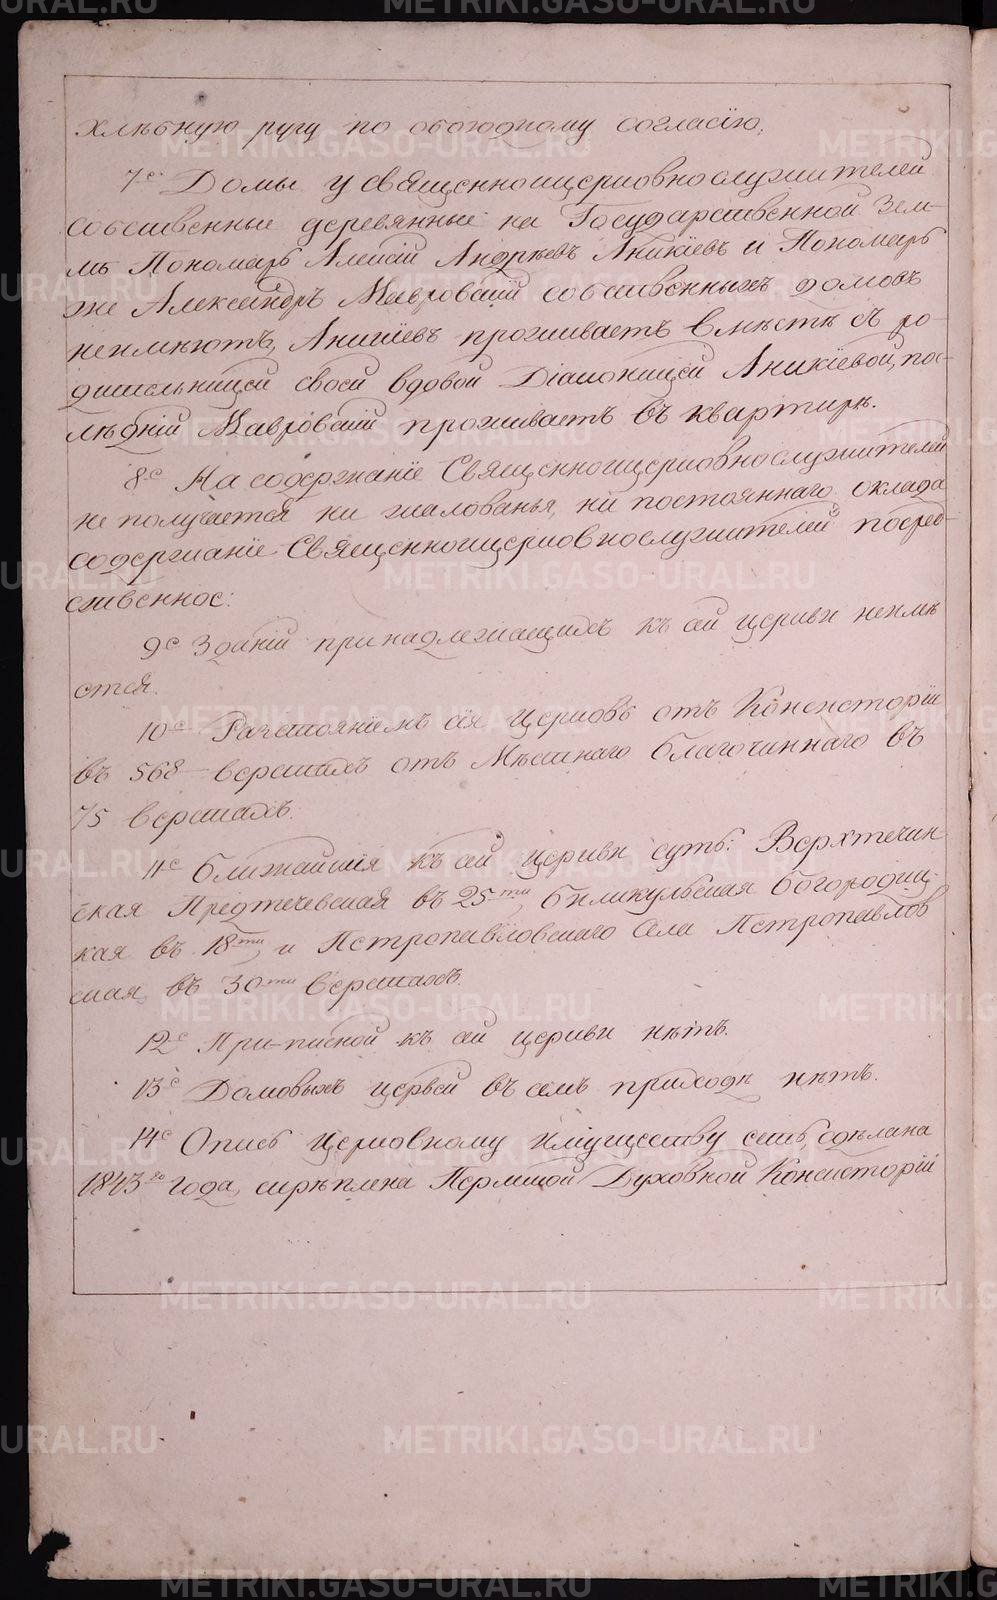 хлѣбную ругу по обоюдному согласію.
7е Домы у священноцерковнослужителей
собственные деревянные на Государственной зем-
лѣ Пономарь Алексій Андрѣевъ Аникіевъ и Пономарь
же Александръ Мавровскій собственныхъ домовъ
неимѣютъ, Аникіевъ проживаетъ вмѣстѣ съ ро-
дительницей своей вдовой Діаконицей Аникіевой, по-
лѣдній Мавровскій проживаетъ въ квартирѣ.
8е На содержаніе Священноцерковнослужителей
не получается ни жалованья, ни постояннаго оклада
содержаніе Священноцерковнослужителей посред-
ственное:
9е Зданій принадлежащихъ къ сей церкви неимѣ
ется.
10е Разстояніемъ сія церковь отъ Консисторіи
въ 568 верстахъ отъ Мѣстнаго благочиннаго въ
75 верстахъ.
11е Ближайшія къ сей церкви суть: Верхтечин
ская Предтечевская въ 25ти, Биликульская Богородиц-
кая въ 18ти, и Петропавловскаго села Петропавлов
ская, въ 30ти верстахъ.
12е При-писной къ сей церкви нѣтъ.
13е Домовыхъ церквей въ семъ приходѣ нѣтъ.
14е Опись церковному имуществу есть, сдѣлана
1843го года, скрѣплена Пермской Духовной Консисторіи
METRIKI.GASO-URAL.RU